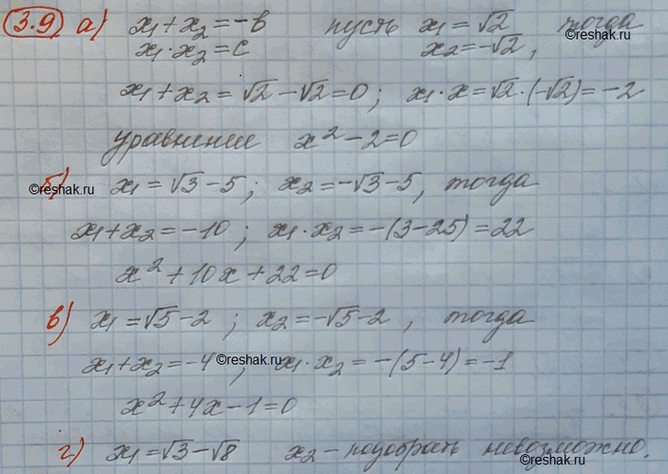 3.9) а) x₁ + x₂ = -в пусть x₁ = √2 тогда
x₁ · x₂ = c x₂ = -√2,
x₁ + x₂ = √2 - √2 = 0; x₁ · x = √2 · (-√2) = -2
уравнение x² - 2 = 0
б) x₁ = √3 - 5; x₂ = -√3 - 5, тогда
©reshak.ru
x₁ + x₂ = -10; x₁ · x₂ = -(3 - 25) = 22
x² + 10x + 22 = 0
в) x₁ = √5 - 2; x₂ = -√5 - 2, тогда
x₁ + x₂ = -4; x₁ · x₂ = -(5 - 4) = -1
©reshak.ru
x² + 4x - 1 = 0
г) x₁ = √3 - √8 x₂ - подобрать невозможно.
©reshak.ru